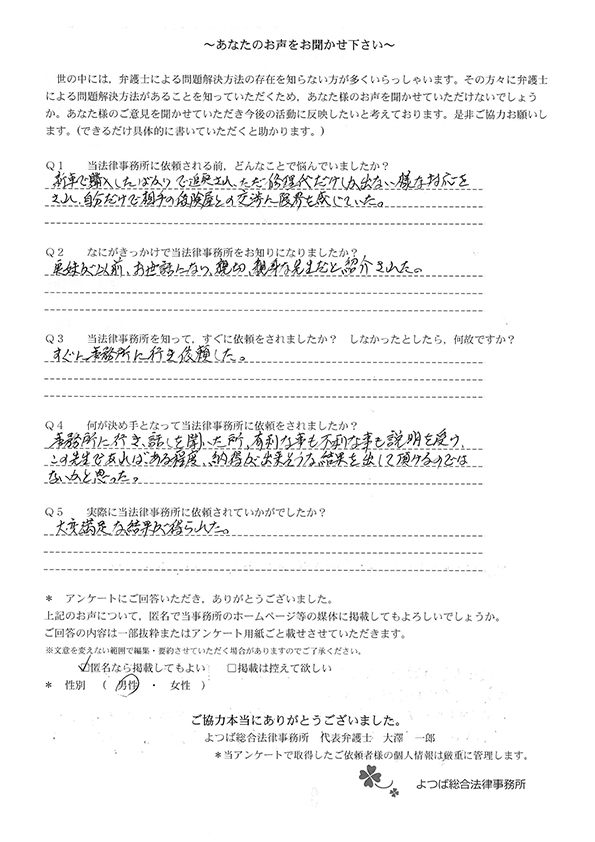 ～あなたのお声をお聞かせ下さい～
世の中には，弁護士による問題解決方法の存在を知らない方が多くいらっしゃいます。その方々に弁護士
による問題解決方法があることを知っていただくため，あなた様のお声を聞かせていただけないでしょう
か。あなた様のご意見を聞かせていただき今後の活動に反映したいと考えております。是非ご協力お願いし
ます。(できるだけ具体的に書いていただくと助かります。)
Q１　当法律事務所に依頼される前，どんなことで悩んでいましたか？
新車で購入したばかりで追突され、ただ修理代だけしか出ない様な対応を
され、自分だけで相手の保険屋との交渉に限界を感じていた。
Q２　なにがきっかけで当法律事務所をお知りになりましたか？
以前、お世話になり、親切、親身な先生だと紹介された。
Q３　当法律事務所を知って，すぐに依頼をされましたか？　しなかったとしたら，何故ですか？
すぐに事務所に行き依頼した。
Q４　何が決め手となって当法律事務所に依頼をされましたか？
事務所に行き、話しを聞いた所、有利な事も不利な事も説明を受け、
この先生であればある程度、納得が出来そうな結果を出して頂けるのでは
ないかと思った。
Q５　実際に当法律事務所に依頼されていかがでしたか？
大変満足な結果が得られた。
＊　アンケートにご回答いただき，ありがとうございました。
上記のお声について，匿名で当事務所のホームページ等の媒体に掲載してもよろしいでしょうか。
ご回答の内容は一部抜粋またはアンケート用紙ごと載せさせていただきます。
※文意を変えない範囲で編集・要約させていただく場合がありますのでご了承ください。
☑匿名なら掲載してもよい　　□掲載は控えて欲しい
＊　性別　（　男性　・　女性　）
ご協力本当にありがとうございました。
よつば総合法律事務所　代表弁護士　大澤　一郎
＊当アンケートで取得したご依頼者様の個人情報は厳重に管理します。
よつば総合法律事務所